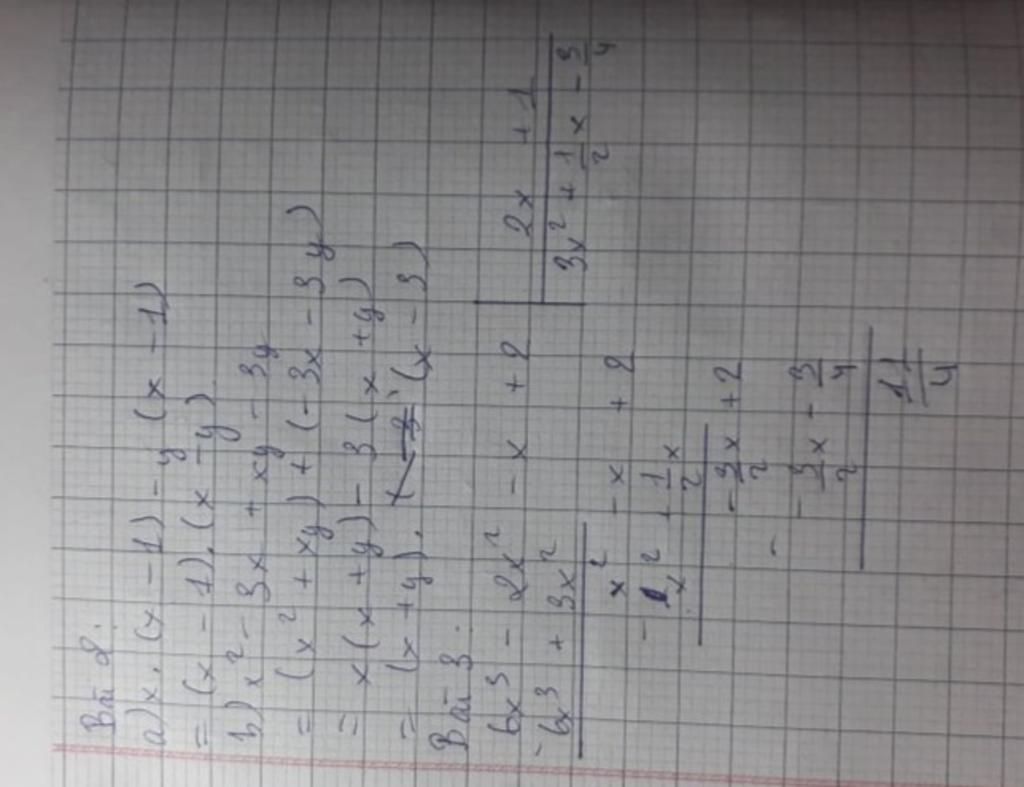 Bài 2:
a) x.(x - 1) - y (x - 1)
= (x - 1).(x - y)
b) x² - 3x + xy - 3y
= (x² + xy) + (-3x - 3y)
= x(x + y) - 3(x + y)
= (x + y).(x - 3)
Bài 3.
6x³ - 2x² - x + 2 | 2x + 1
- 6x³ + 3x² | 3x² + 1/2 x - 3/4
x² - x + 2
- x² + 1/2 x
- 3/2 x + 2
- - 3/2 x - 3/4
11/4